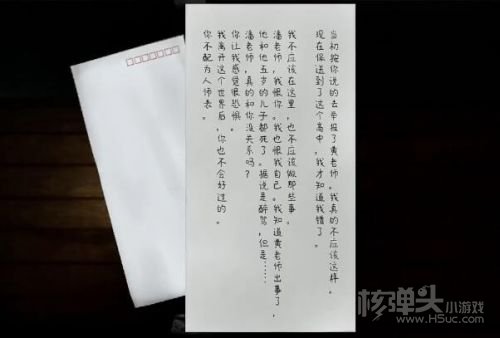 当初按你说的去举报了黄老师。我真的不应该这样。
现在保送到了这个高中。我才知道我错了。
我不应该在这里，也不应该做那些事。
潘老师，我恨你。我也恨我自己。我知道黄老师出事了，
他和他五岁的儿子都死了。据说是醉驾，但是……
潘老师，真的和你没关系吗？
你让我感觉很恐惧。
我离开这个世界后，你也不会好过的。
你不配为人师表。
核弹头小游戏
www.H5uc.com